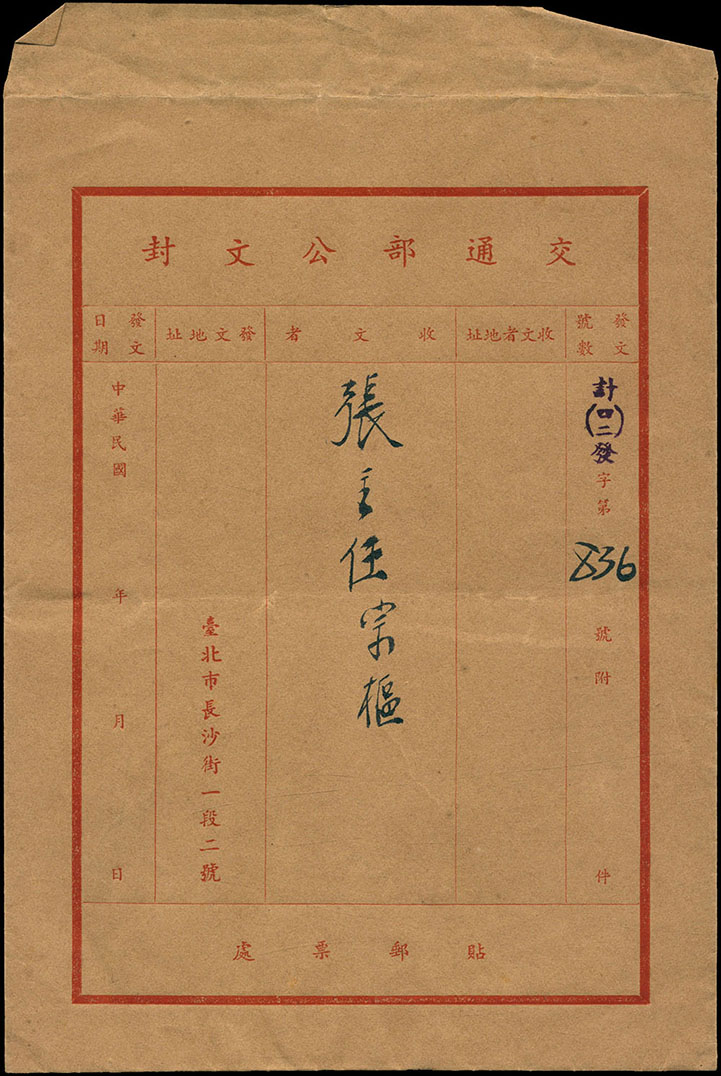 交通部公文封
發文號數
計(四二)發字第836號附件
收文者地址
收文者
張主任宗樞
發文地址
臺北市長沙街一段二號
發文日期
中華民國年月日
貼郵票處